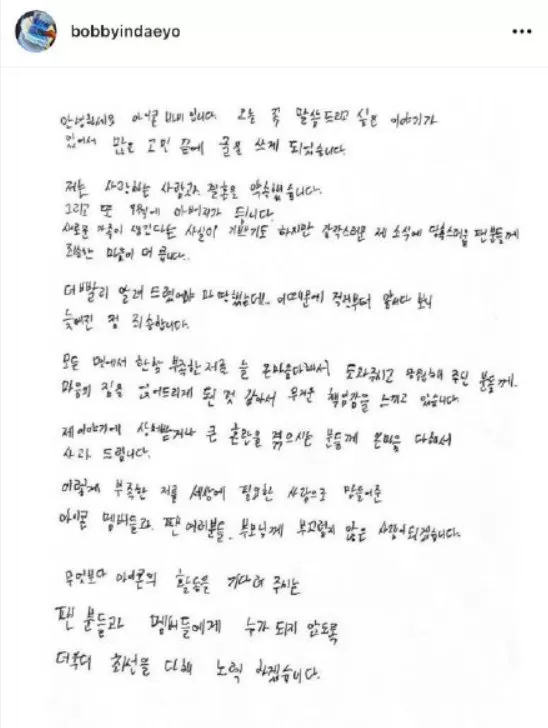 bobbyindaeyo
안녕하세요 아이콘 바비 입니다. 오늘 꼭 말씀드리고 싶은 이야기가
있어서 많은 고민 끝에 글을 쓰게 되었습니다.
저는 사랑하는 사람과 결혼을 약속했습니다.
그리고 또 9월에 아버지가 됩니다.
새로운 가족이 생긴다는 사실이 기쁘기도 하지만 갑작스러운 제 소식에 당혹스러울 팬분들께
죄송한 마음이 더 큽니다.
더 빨리 알려 드렸어야 마땅했는데.. 이 때문에 걱정부터 앞서다 보니
늦어진 점 죄송합니다.
모든 면에서 한참 부족한 저를 늘 온마음 다해서 도와주시고 응원해 주신 분들께.
마음의 짐을 얹어드리게 된 것 같아서 무거운 책임감을 느끼고 있습니다.
제 이야기에 상처받거나 큰 혼란을 겪으시는 분들께 온마음 다해서
사과 드립니다.
이렇게 부족한 저를 세상에 필요한 사람으로 만들어준
아이콘 멤버들과, 팬 여러분들, 부모님께 부끄럽지 않은 사람이 되겠습니다.
무엇보다 아이콘의 활동을 기다려 주시는
팬 분들과 멤버들에게 누가 되지 않도록
더욱더 최선을 다해 노력 하겠습니다.